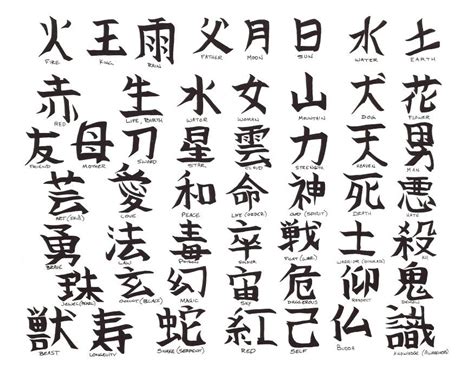 火 王 雨 父 月 日 水 土
FIRE KING RAIN FATHER MOON SUN WATER EARTH
赤 生 水 女 山 犬 花
RED LIFE, BIRTH WATER WOMAN MOUNTAIN DOG FLOWER
友 母 刀 星 雲 力 天 男
FRIEND MOTHER SWORD STAR CLOUD STRENGTH HEAVEN MAN
芸 愛 和 命 神 死 悪
ART (SKILL) LOVE PEACE LIFE (ORDER) GOD (SPIRIT) DEATH HATE
勇 法 毒 卒 戦 士 殺
BRAVE LAW POISON FIGHT (WAR) WARRIOR KILL
珠 玄 幻 宙 危 仰 鬼
JEWEL (PEARL) OCCULT (BLACK) MAGIC SKY DANGEROUS RESPECT DEMON
獣 寿 蛇 紅 己 仏 識
BEAST LONGEVITY SNAKE (SERPENT) RED SELF BUDDH KNOWLEDGE